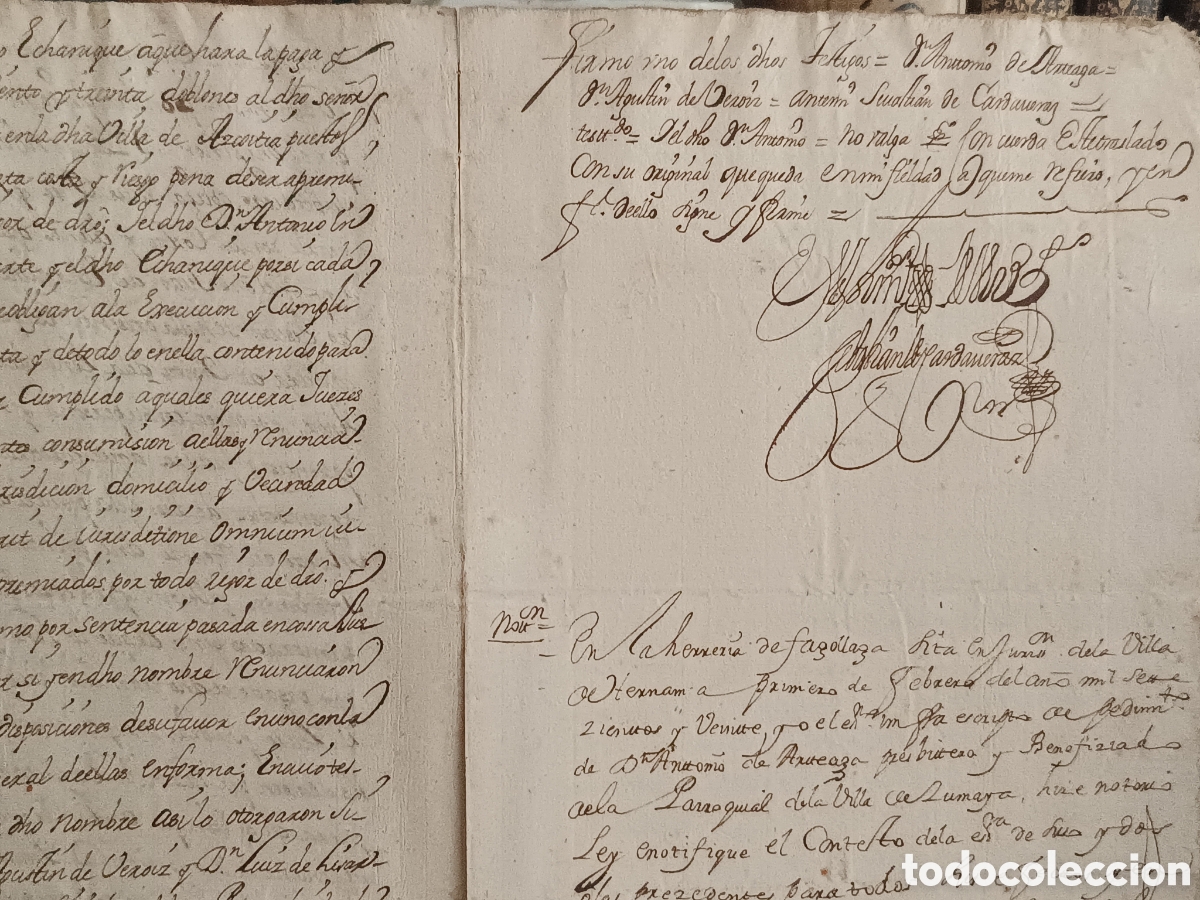 o Echanique aque hara la paga y
ento y treinta doblones al dho señor
en la dha Villa de Azcoitia puestos
ta costa y riesgo pena de ser apremi-
or de dro; Y el dho Dn Antonio en
erte y el dho Echanique por si cada
obligan ala Execucion y Cumpli
ta y de todo lo en ella contenido para
Cumplido a quales quiera Juezes
nto consumision a ellas y Renuncia-
risdicion domicilio y Vecindad
rit de iurisdictione Omnium iu-
premiados por todo rigor de dro. y
mo por sentencia pasada en cosa
r si y en dho nombre Renunciaron
disposiciones de su favor en uno con la
eral de ellas en forma; En cuio tes-
dho nombre asi lo otorgaron
Agustin de Veroiz y Dn Luiz de Lisar-
Firmo uno de los dhos Testigos = Dn Anttonio de Arteaga =
Dn Agustin de Veroiz = antemi Sevastian de Cardaveraz =
testdo = Y el dho Dn Antonio = no valga Concuerda Este traslado
Con su original que queda en mi fieldad a que me refiero, y en
fe. de ello signe y firme =
Sebastian de Cardaveraz
Nottn =
En la herreria de fagollaga sita en Jurisn de la Villa
de Hernani a Primero de Febrero del año mil sete
zientos y Veinte, yo el esno in fra escripto de pedimto
de Dn Anttonio de Arteaga presbittero y Benefiziado
de la Parroquial de la Villa de Zumaya, hize notorio
Ley e notifique el Contesto de la esra de suso y dos
precedentes para todos
todocoleccion